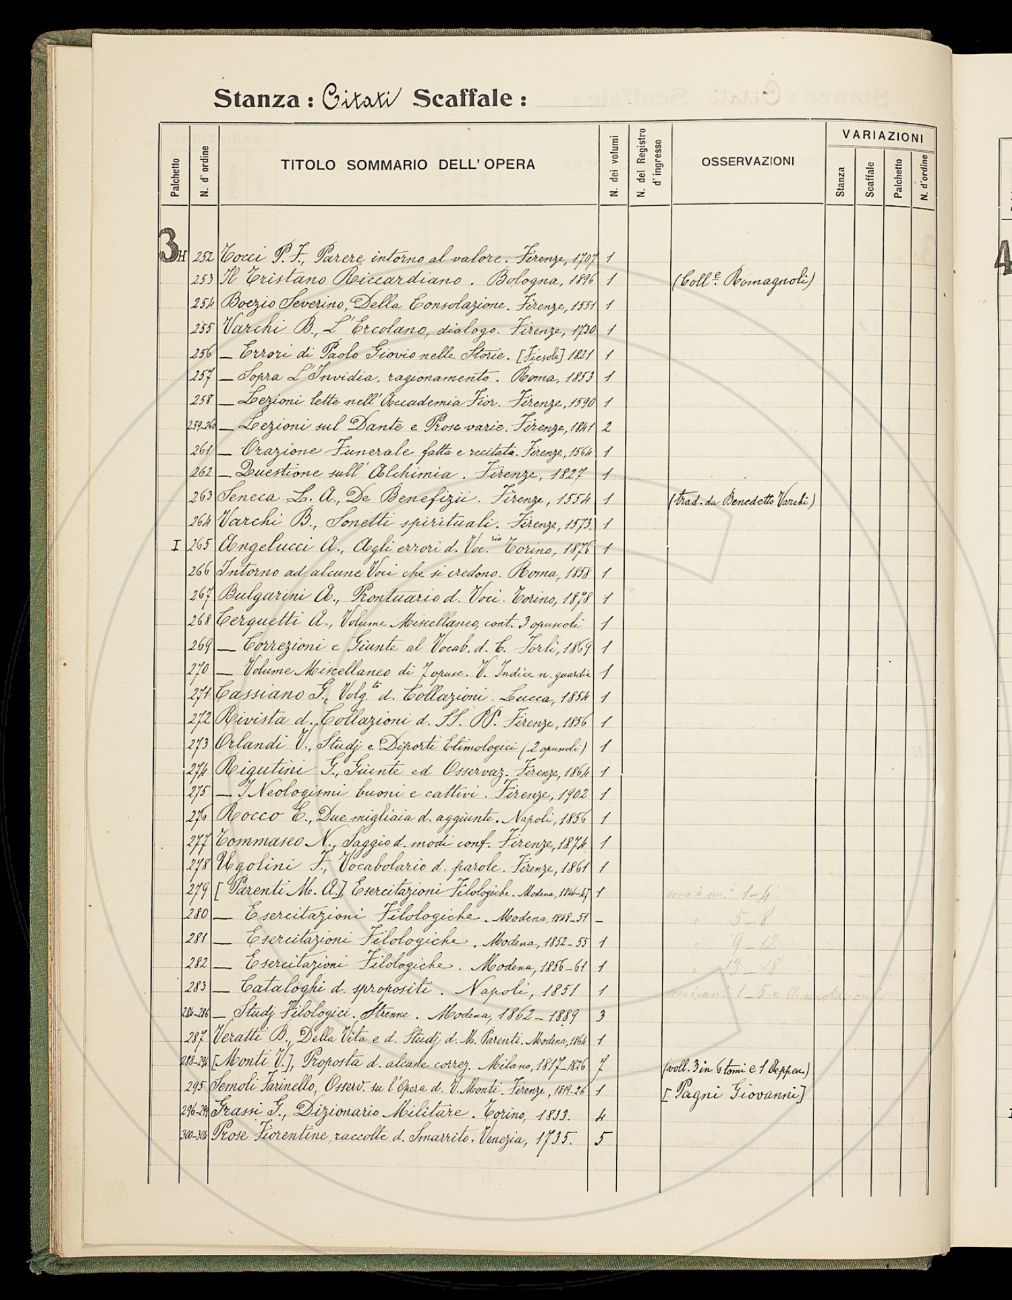 Stanza: Citati Scaffale:
Palchetto N. d'ordine TITOLO SOMMARIO DELL'OPERA N. dei volumi N. del Registro d'ingresso OSSERVAZIONI VARIAZIONI Stanza Scaffale Palchetto N. d'ordine
3 H 252 Tocci P. F., Parere intorno al valore. Firenze, 1707 1
253 Il Tristano Riccardiano. Bologna, 1896 1 (Coll.e Romagnoli)
254 Boezio Severino, Della Consolazione. Firenze, 1551 1
255 Varchi B., L'Ercolano, dialogo. Firenze, 1730 1
256 — Errori di Paolo Giovio nelle Storie. [Fiesole] 1821 1
257 — Sopra L'Invidia, ragionamento. Roma, 1853 1
258 — Lezioni lette nell'Accademia Fior. Firenze, 1590 1
259-260 — Lezioni sul Dante e Prose varie. Firenze, 1841 2
261 — Orazione Funerale fatta e recitata. Firenze, 1564 1
262 — Questione sull'Alchimia. Firenze, 1827 1
263 Seneca L. A., De Benefizii. Firenze, 1554 1 (trad. da Benedetto Varchi)
264 Varchi B., Sonetti spirituali. Firenze, 1573 1
I 265 Angelucci A., Agli errori d. Voc.rio Torino, 1876 1
266 Intorno ad alcune Voci che si credono. Roma, 1858 1
267 Bulgarini A., Prontuario d. Voci. Torino, 1878 1
268 Cerquetti A., Volume Miscellaneo, cont. 3 opuscoli 1
269 — Correzioni e Giunte al Vocab. d. C. Forlì, 1869 1
270 — Volume Miscellaneo di 7 opusc. V. Indice n. guardie 1
271 Cassiano G., Volg.te d. Collazioni. Lucca, 1854 1
272 Rivista d. Collazioni d. SS. PP. Firenze, 1856 1
273 Orlandi V., Studj e Diporti Etimologici (2 opuscoli) 1
274 Rigutini G., Giunte ed Osservaz. Firenze, 1864 1
275 — I Neologismi buoni e cattivi. Firenze, 1902 1
276 Rocco E., Due migliaia d. aggiunte. Napoli, 1856 1
277 Tommaseo N., Saggio d. modi conf. Firenze, 1874 1
278 Ugolini F., Vocabolario d. parole. Firenze, 1861 1
279 [Parenti M. A.] Esercitazioni Filologiche. Modena, 1844-47 1 1-4
280 — Esercitazioni Filologiche. Modena, 1848-51 - 5-8
281 — Esercitazioni Filologiche. Modena, 1852-55 1 9-12
282 — Esercitazioni Filologiche. Modena, 1856-61 1 13-18
283 — Cataloghi d. spropositi. Napoli, 1851 1 1-5 e Annotazioni
284-286 — Studj Filologici. Strenne. Modena, 1862-1889 3
287 Veratti B., Della Vita e d. Studj d. M. Parenti. Modena, 1864 1
288-294 [Monti V.], Proposta d. alcune correz. Milano, 1817-1826 7 (voll. 3 in 6 tomi e 1 Appen.)
295 Semoli Farinello, Osserv. su l'Opera d. V. Monti. Firenze, 1819-26 1 [Pagni Giovanni]
296-299 Grassi G., Dizionario Militare. Torino, 1833. 4
300-304 Prose Fiorentine, raccolte d. Smarrito. Venezia, 1735. 5
4